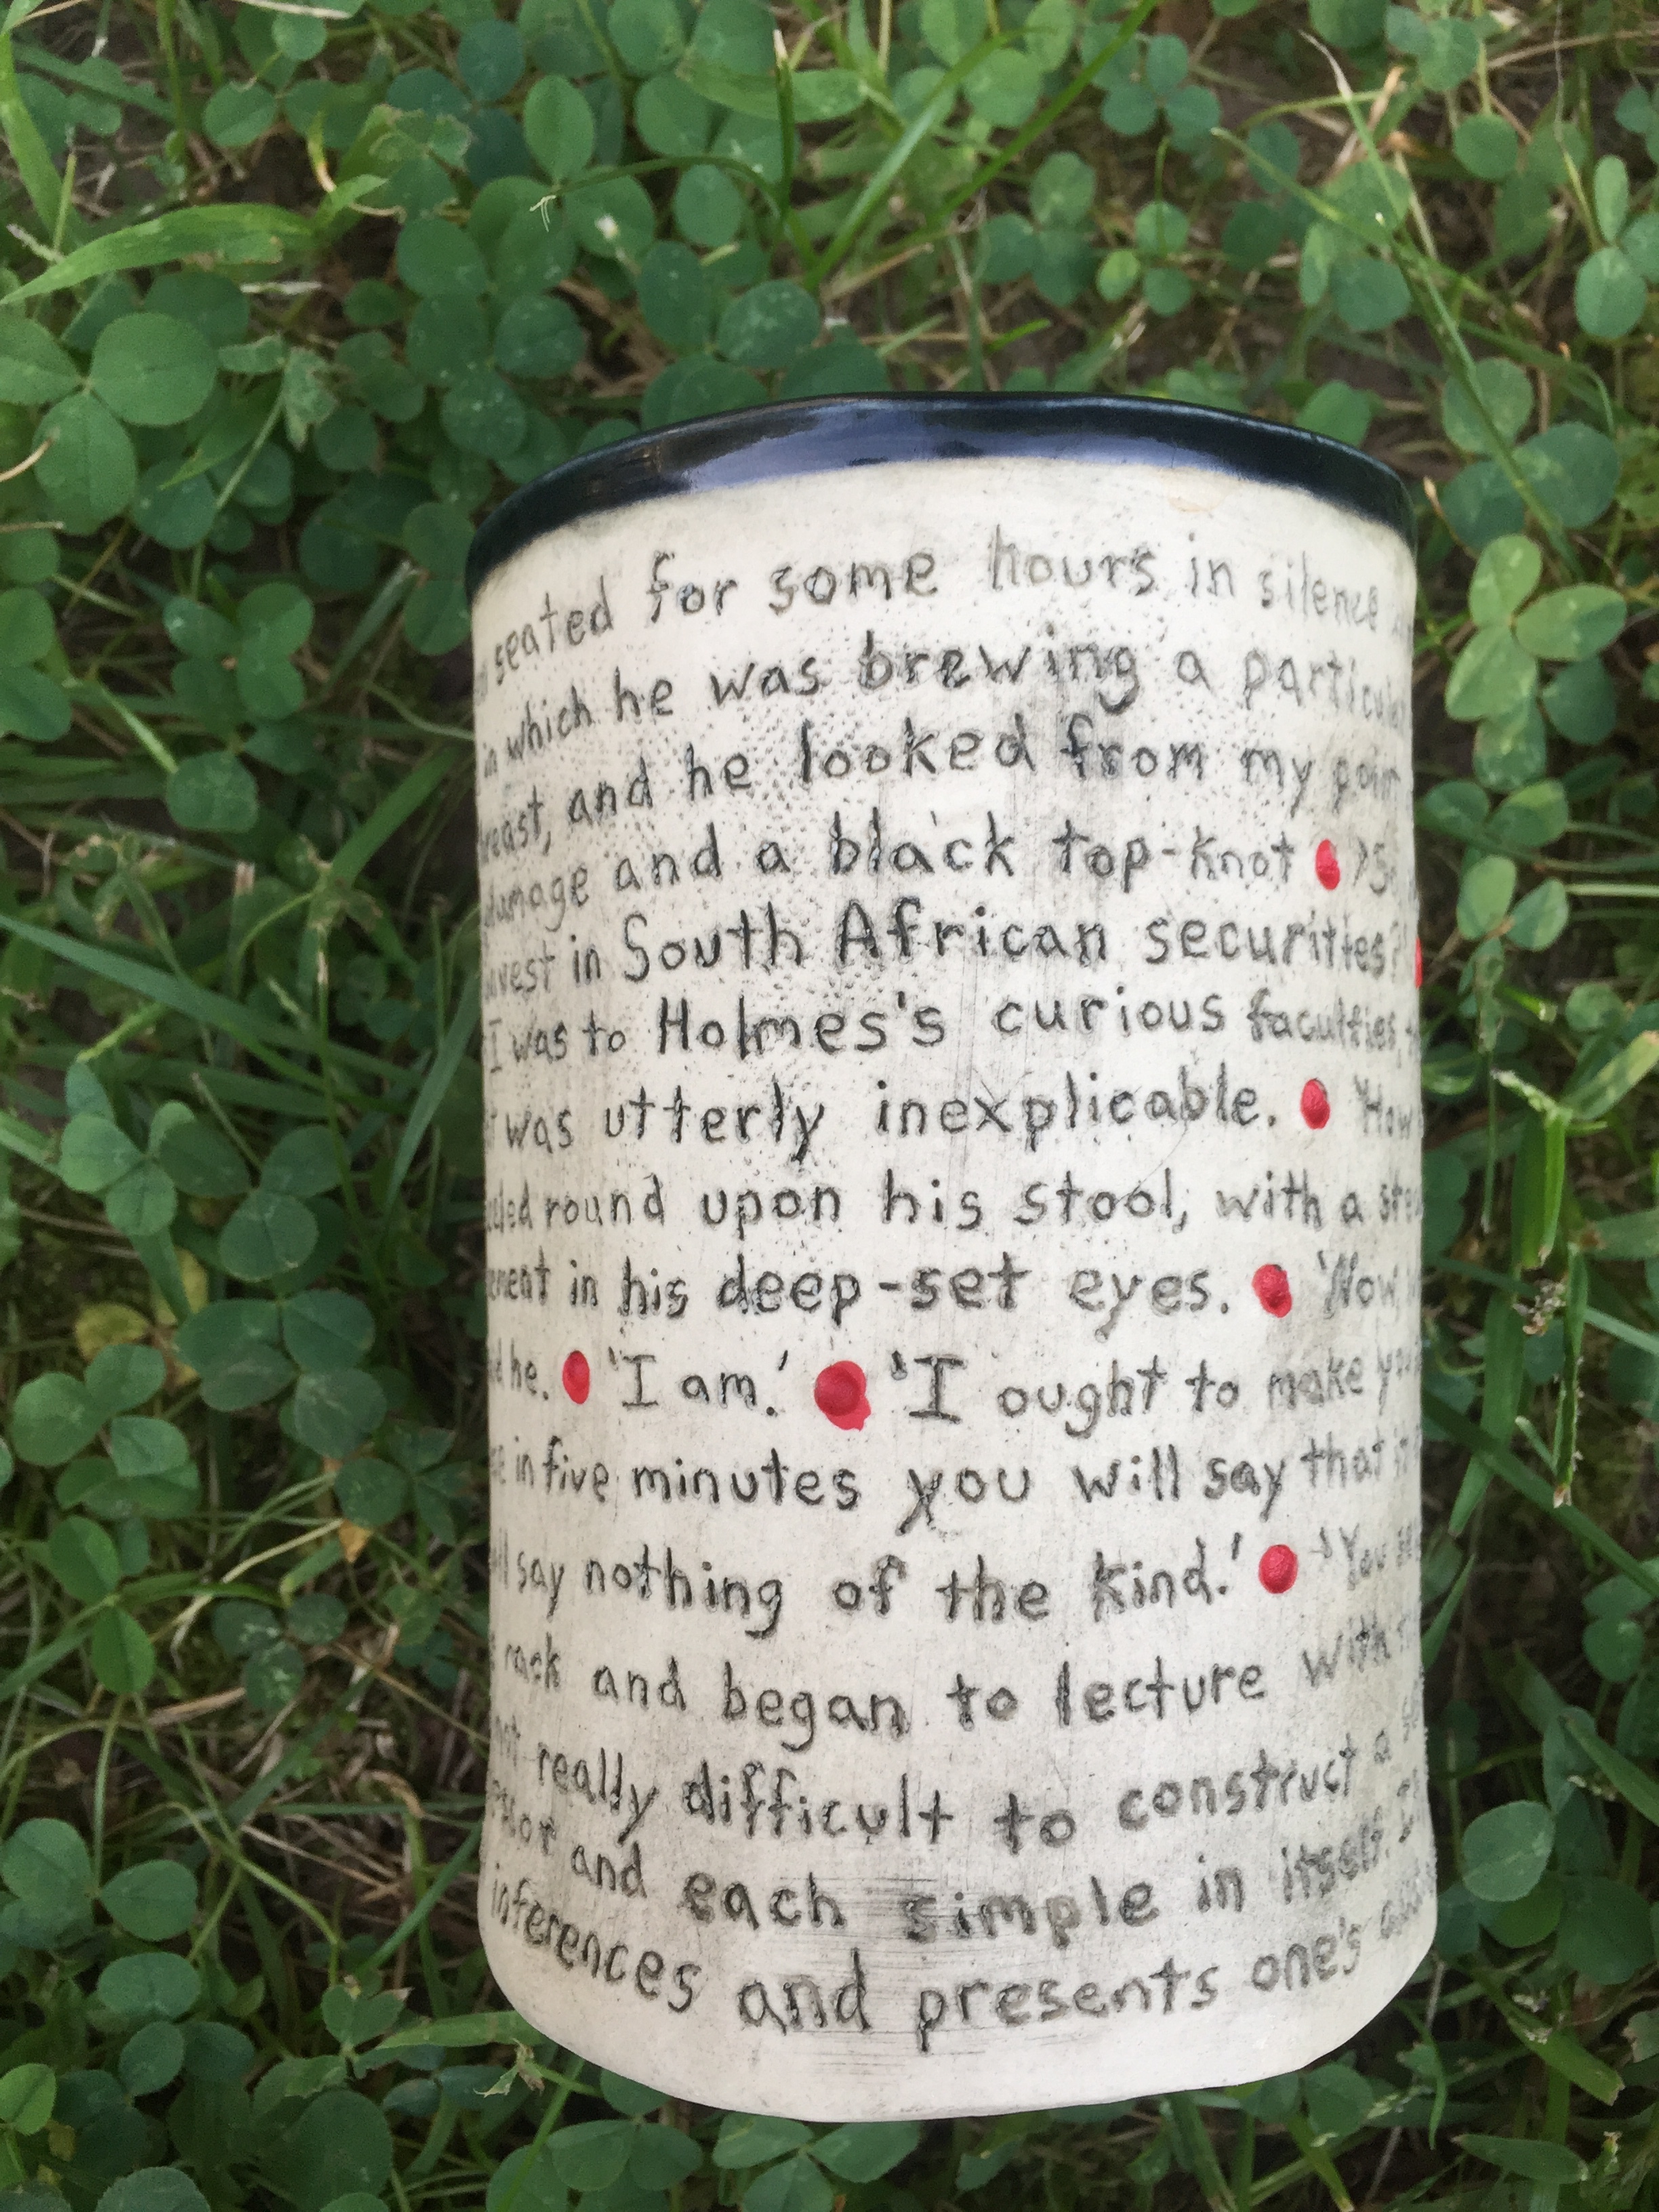 seated for some hours in silence
in which he was brewing a particular
and he looked from my
and a black top-knot
in South African securities?
I was to Holmes's curious faculties,
was utterly inexplicable. 'How
round upon his stool, with a
in his deep-set eyes. 'Now,
he. 'I am.' 'I ought to make
in five minutes you will say that
say nothing of the kind.' 'You
rack and began to lecture with
really difficult to construct a
and each simple in itself.
inferences and presents one's